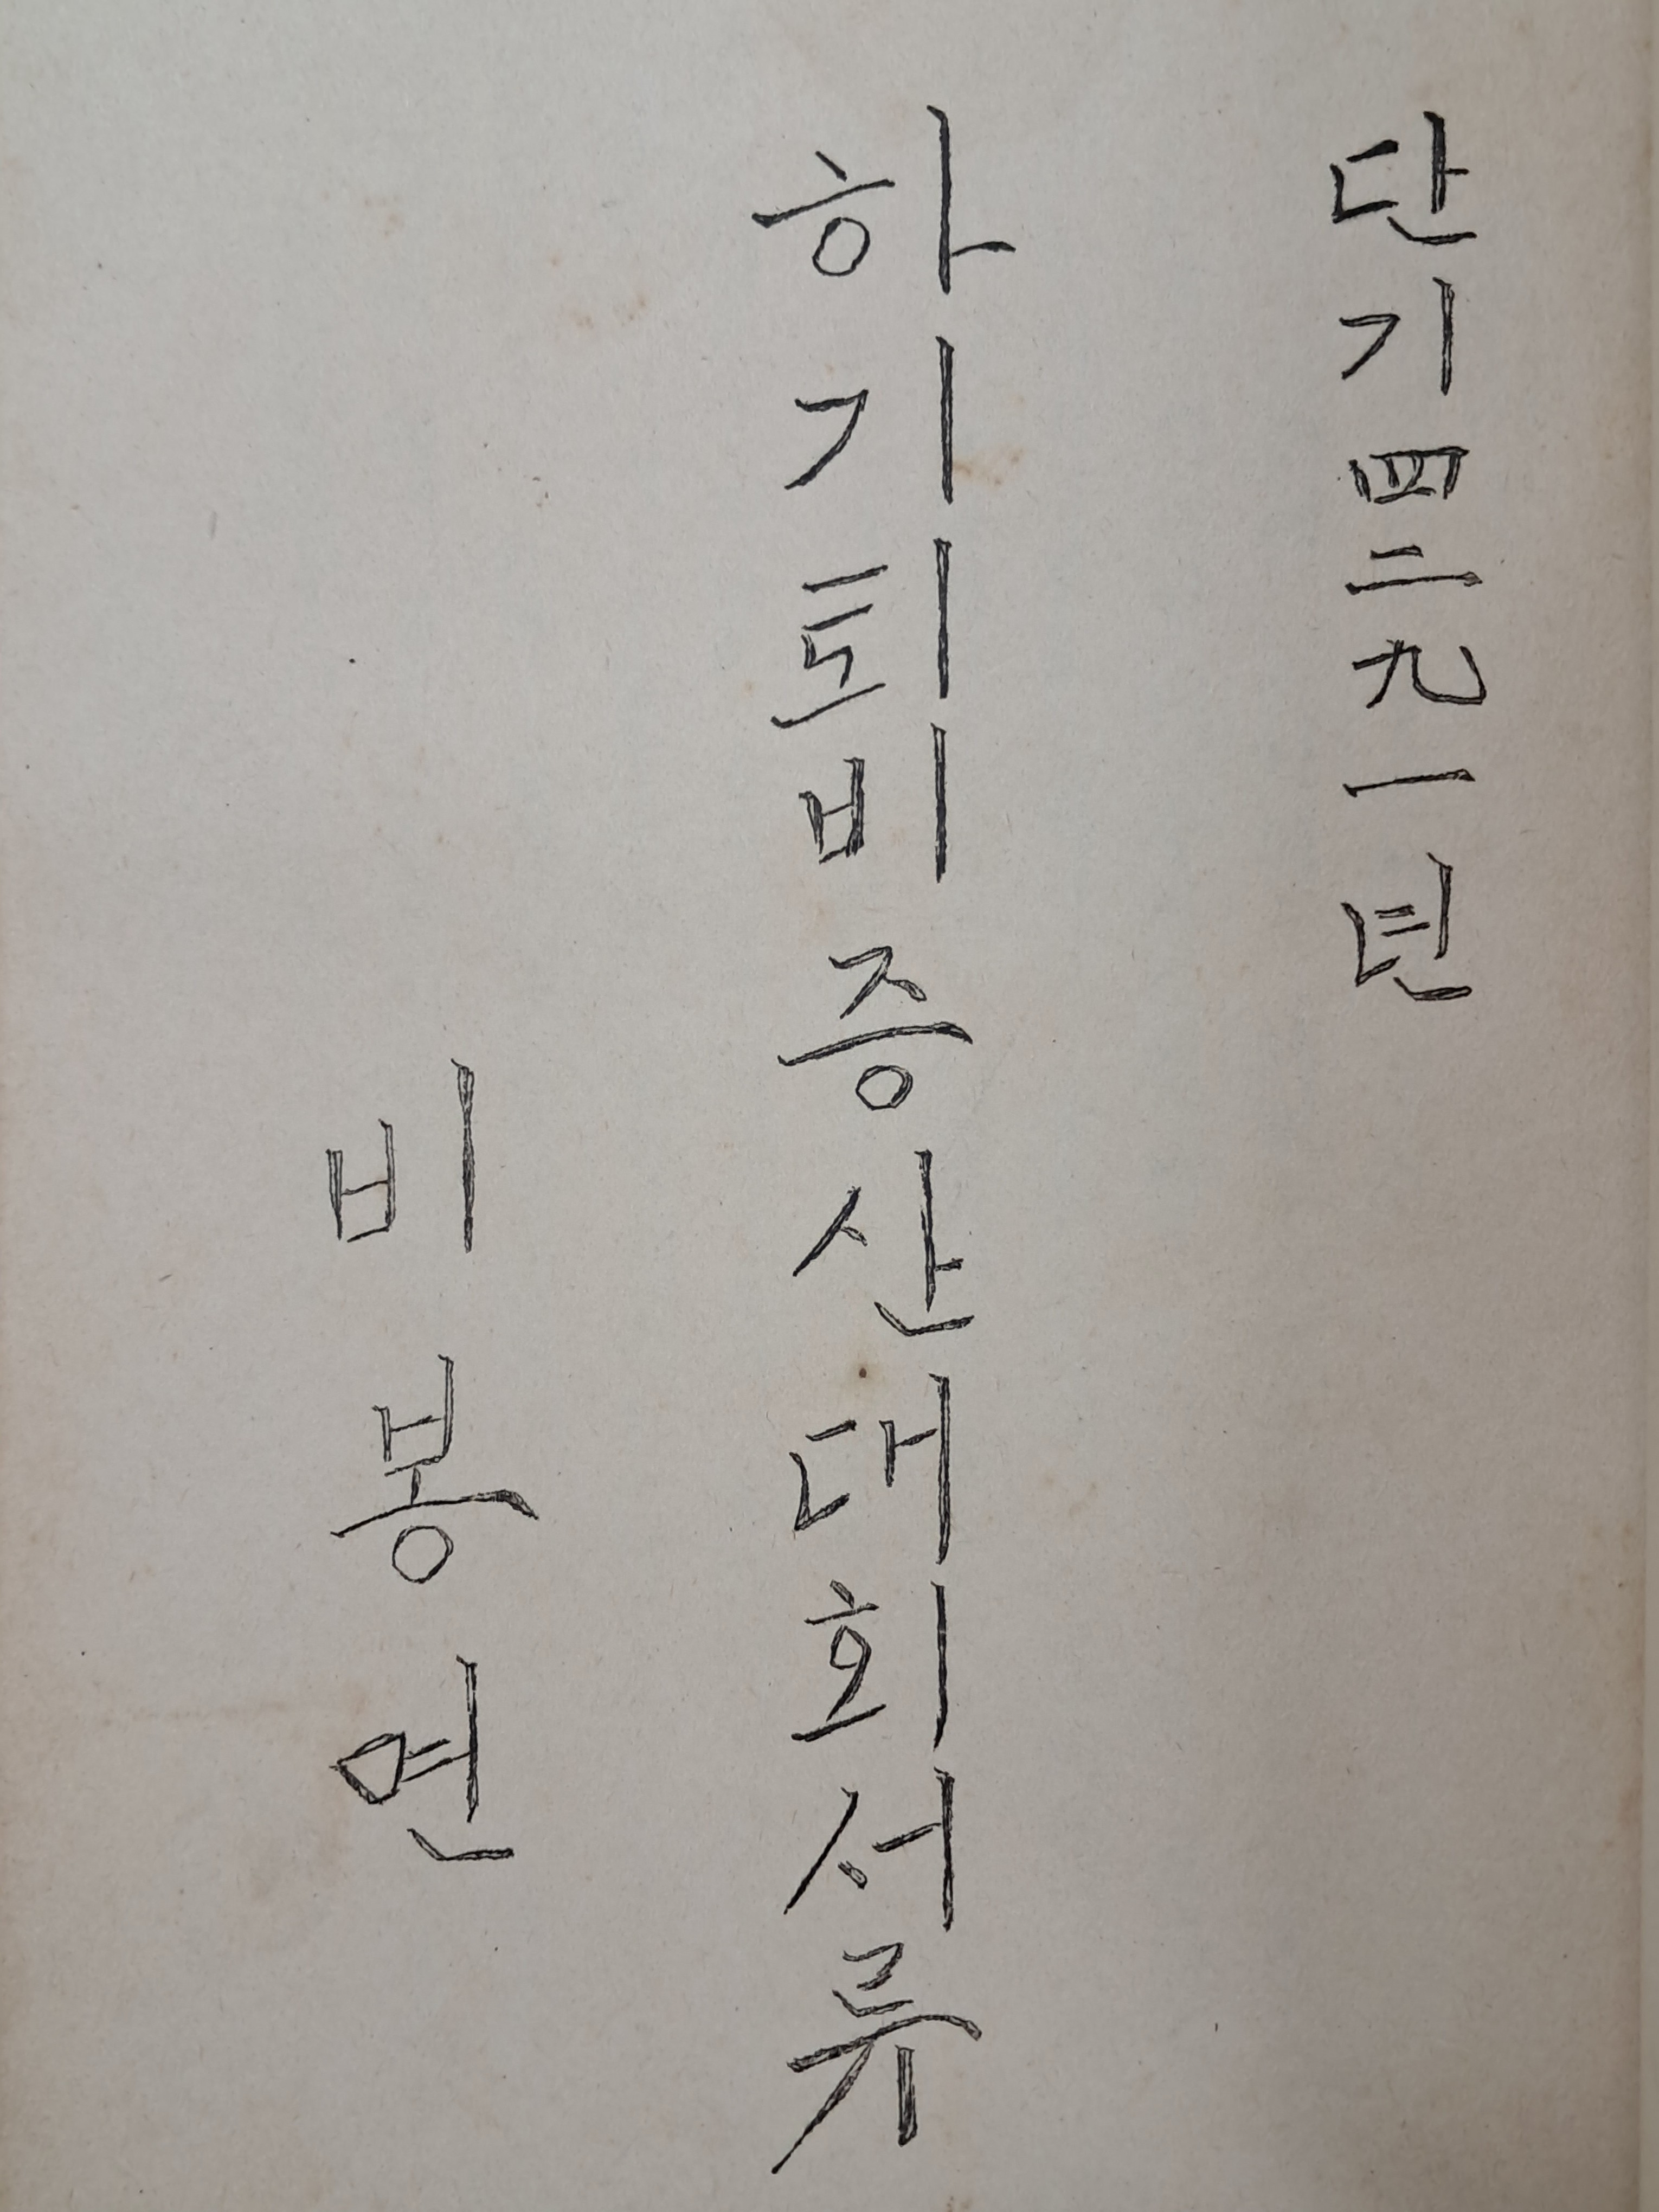 단기四二九一년
하기퇴비증산대회서류
비봉면